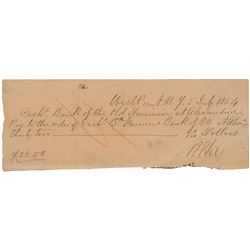 West Point N.Y. 5 July 1854
Cash^r Bank of the Old Dominion, at Alexandria
Pay to the order of Cash^r Farmers Bank of Va
Thirty two Dollars
R E Lee